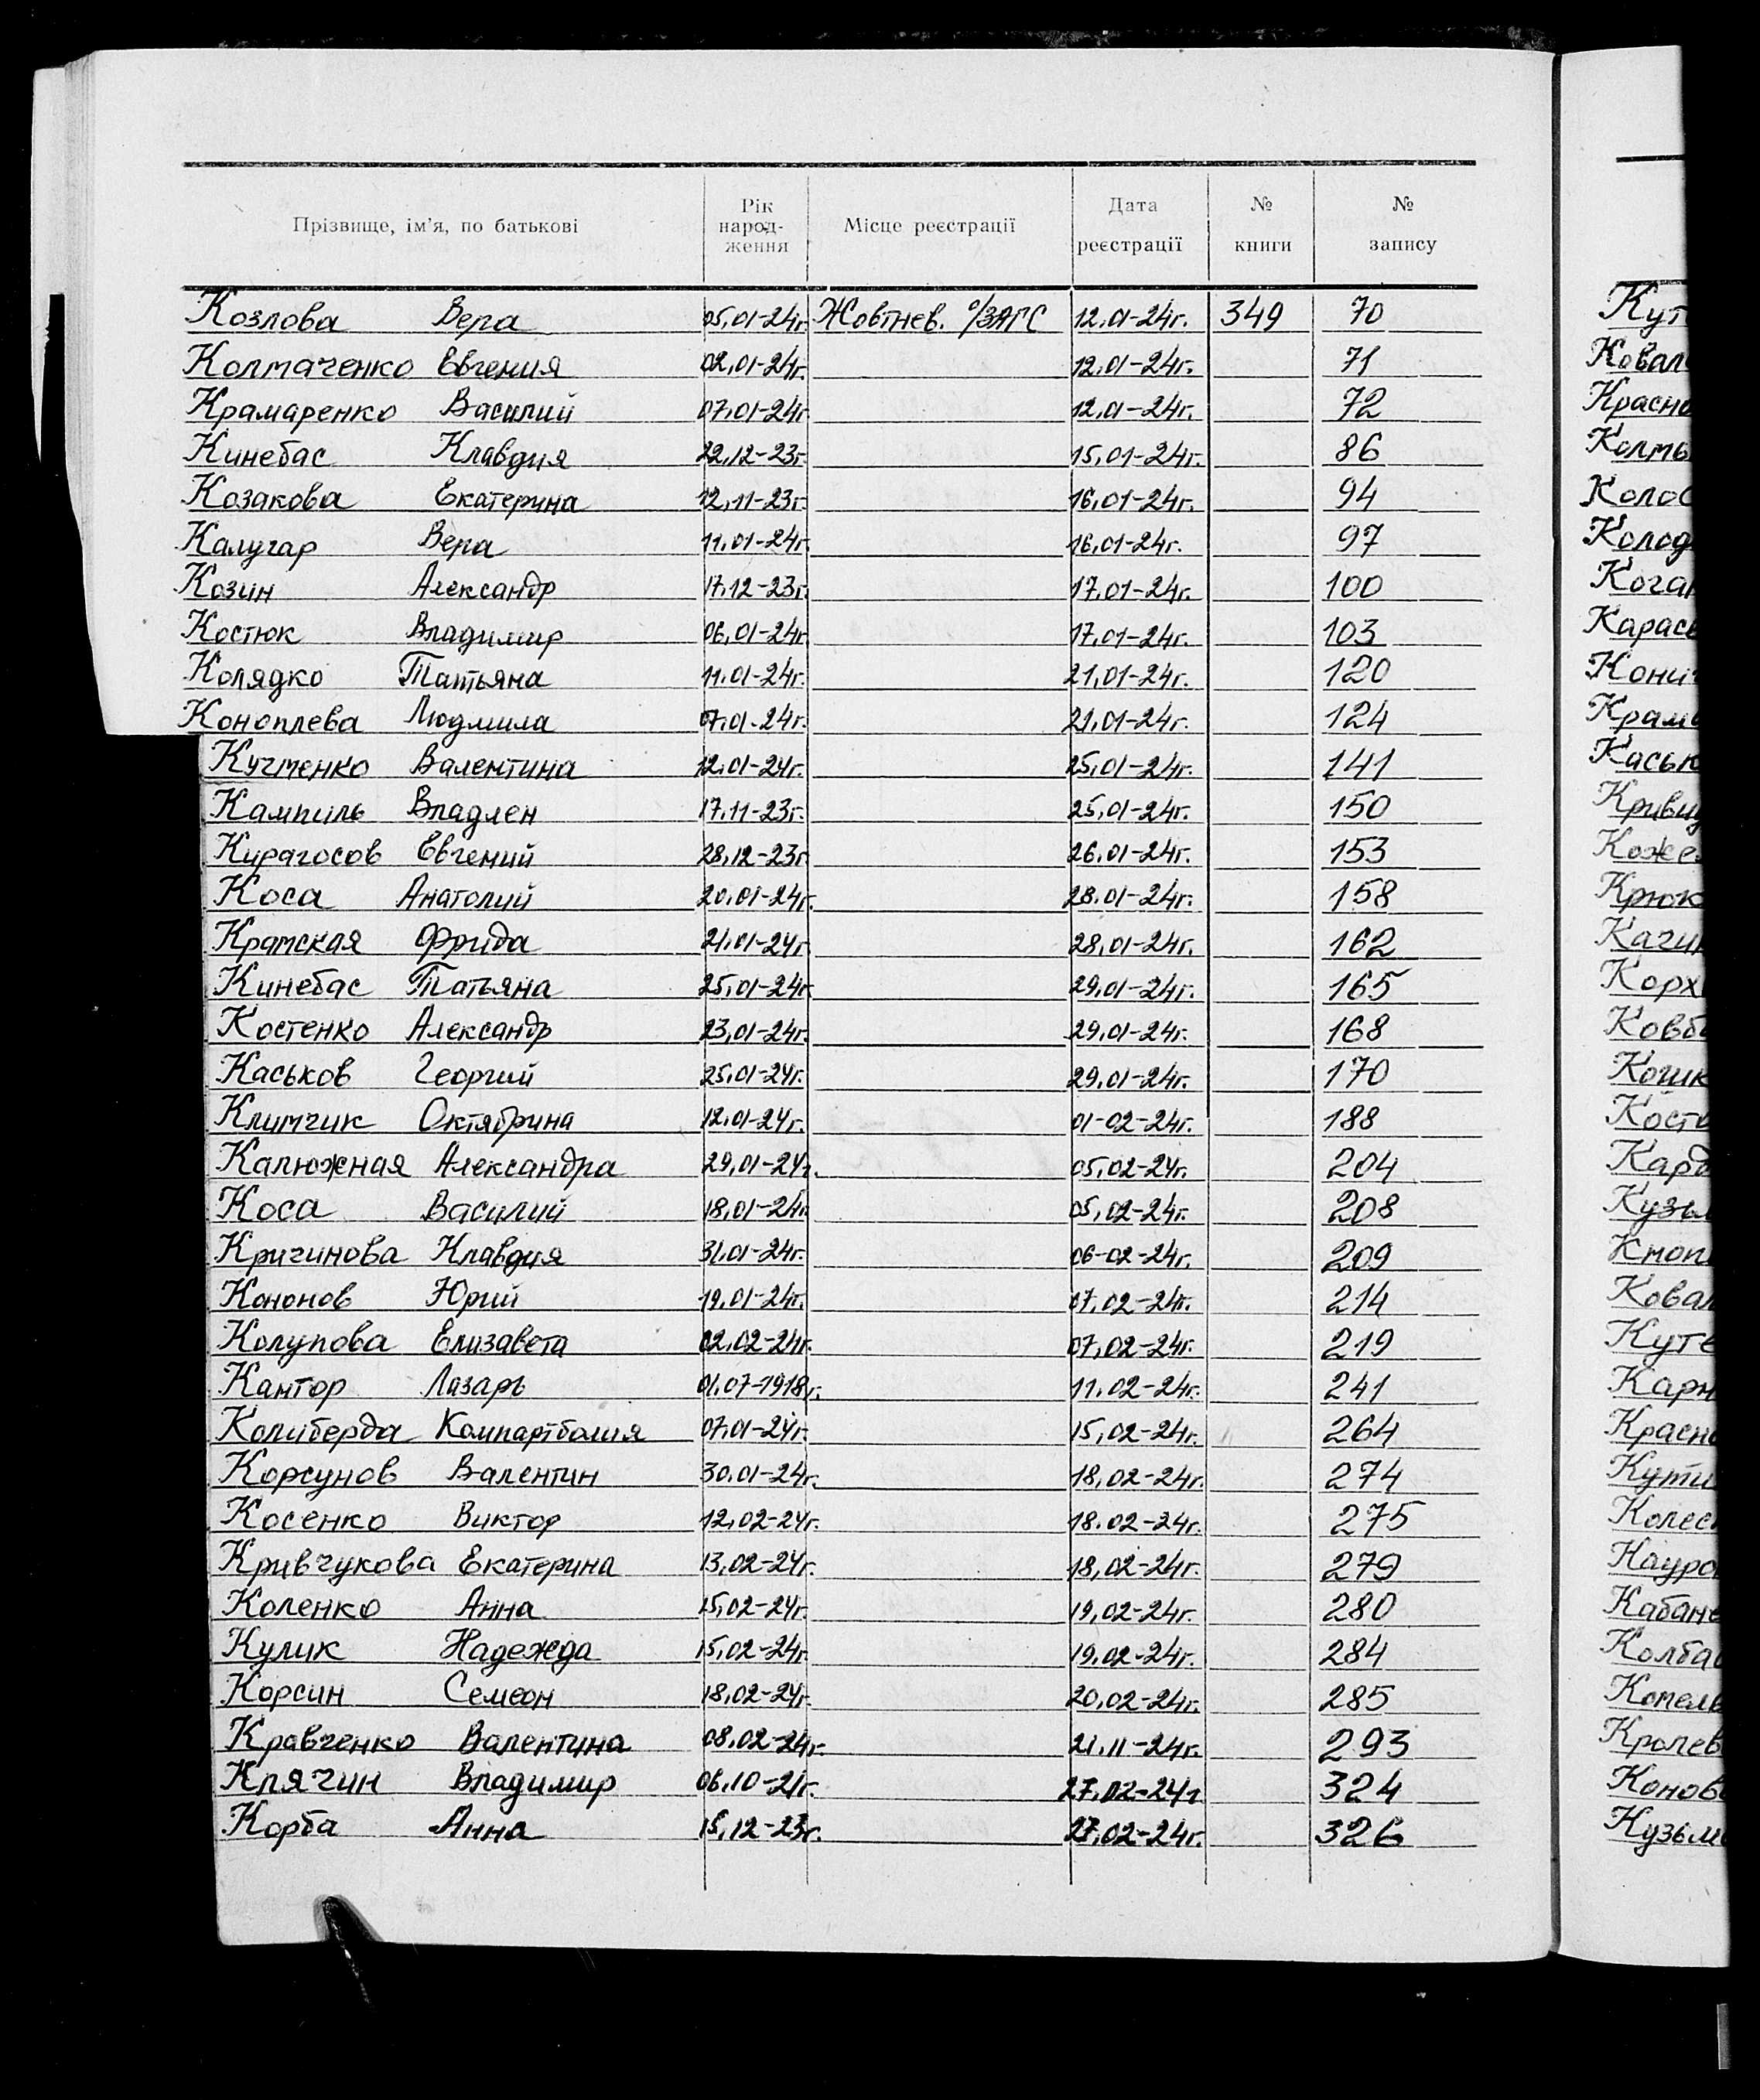 Прізвище, ім'я, по батькові Рік народ-ження Місце реєстрації Дата реєстрації № книги № запису
Козлова Вера 05,01-24г. Жовтнев. о/ЗАГС 12,01-24г. 349 70
Колтаченко Евгения 02,01-24г. 12,01-24г. 71
Крамаренко Василий 07,01-24г 12,01-24г. 72
Кинебас Клавдия 22,12-23г. 15,01-24г. 86
Козакова Екатерина 12,11-23г. 16,01-24г. 94
Калугар Вера 11,01-24г. 16,01-24г. 97
Козин Александр 17,12-23г. 17,01-24г. 100
Костюк Владимир 06,01-24г. 17,01-24г. 103
Колядко Татьяна 11,01-24г. 21,01-24г. 120
Коноплева Людмила 07,01-24г. 21,01-24г. 124
Кучменко Валентина 12,01-24г. 25,01-24г. 141
Кампиль Владлен 17,11-23г. 25,01-24г. 150
Курагосов Евгений 28,12-23г. 26,01-24г. 153
Коса Анатолий 20,01-24г. 28,01-24г. 158
Крамская Фрида 21,01-24г. 28,01-24г. 162
Кинебас Татьяна 25,01-24г. 29,01-24г. 165
Костенко Александр 23,01-24г. 29,01-24г. 168
Каськов Георгий 25,01-24г. 29,01-24г. 170
Климчик Октябрина 12,01-24г. 01-02-24г. 188
Калюжная Александра 29,01-24г. 05,02-24г. 204
Коса Василий 18,01-24г. 05,02-24г. 208
Кричинова Клавдия 31,01-24г. 06-02-24г. 209
Кононов Юрий 19,01-24г. 07,02-24г. 214
Колупова Елизавета 02,02-24г. 07,02-24г. 219
Кантор Лазарь 01,07-1918г. 11,02-24г. 241
Колиберда Компартболия 07,01-24г. 15,02-24г. 264
Корсунов Валентин 30,01-24г. 18,02-24г. 274
Косенко Виктор 12,02-24г. 18,02-24г. 275
Кривчукова Екатерина 13,02-24г. 18,02-24г. 279
Коленко Анна 15,02-24г. 19,02-24г. 280
Кулик Надежда 15,02-24г. 19,02-24г. 284
Корсин Семеон 18,02-24г. 20,02-24г. 285
Кравченко Валентина 08,02-24г. 21,11-24г. 293
Клячин Владимир 06,10-21г. 27,02-24г 324
Корба Анна 15,12-23г. 27,02-24г. 326